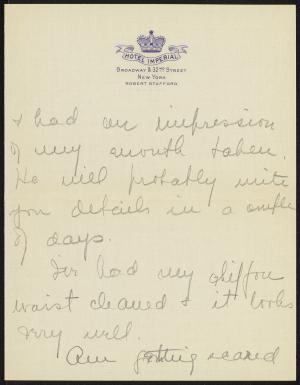 HOTEL IMPERIAL
BROADWAY & 32ND STREET
NEW YORK
ROBERT STAFFORD
& had an impression
of my mouth taken.
He will probably write
you details in a couple
of days.
I've had my chiffon
waist cleaned & it looks
very well.
Am getting scared